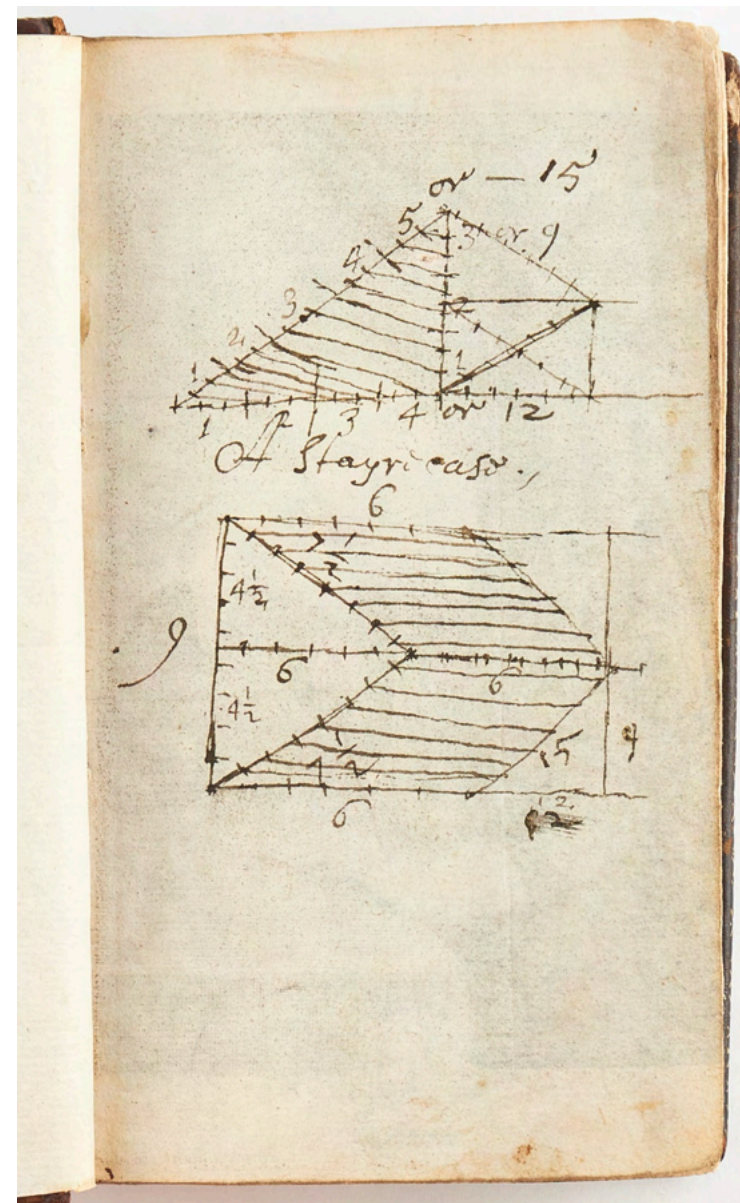 or — 15
5 3 or 9
4
3 2
2
1 1
1 2 3 4 or 12
A Stayre case.
6
7 1/2
4 1/2
9 6 6
4 1/2
7 1/2 15 9
6 12